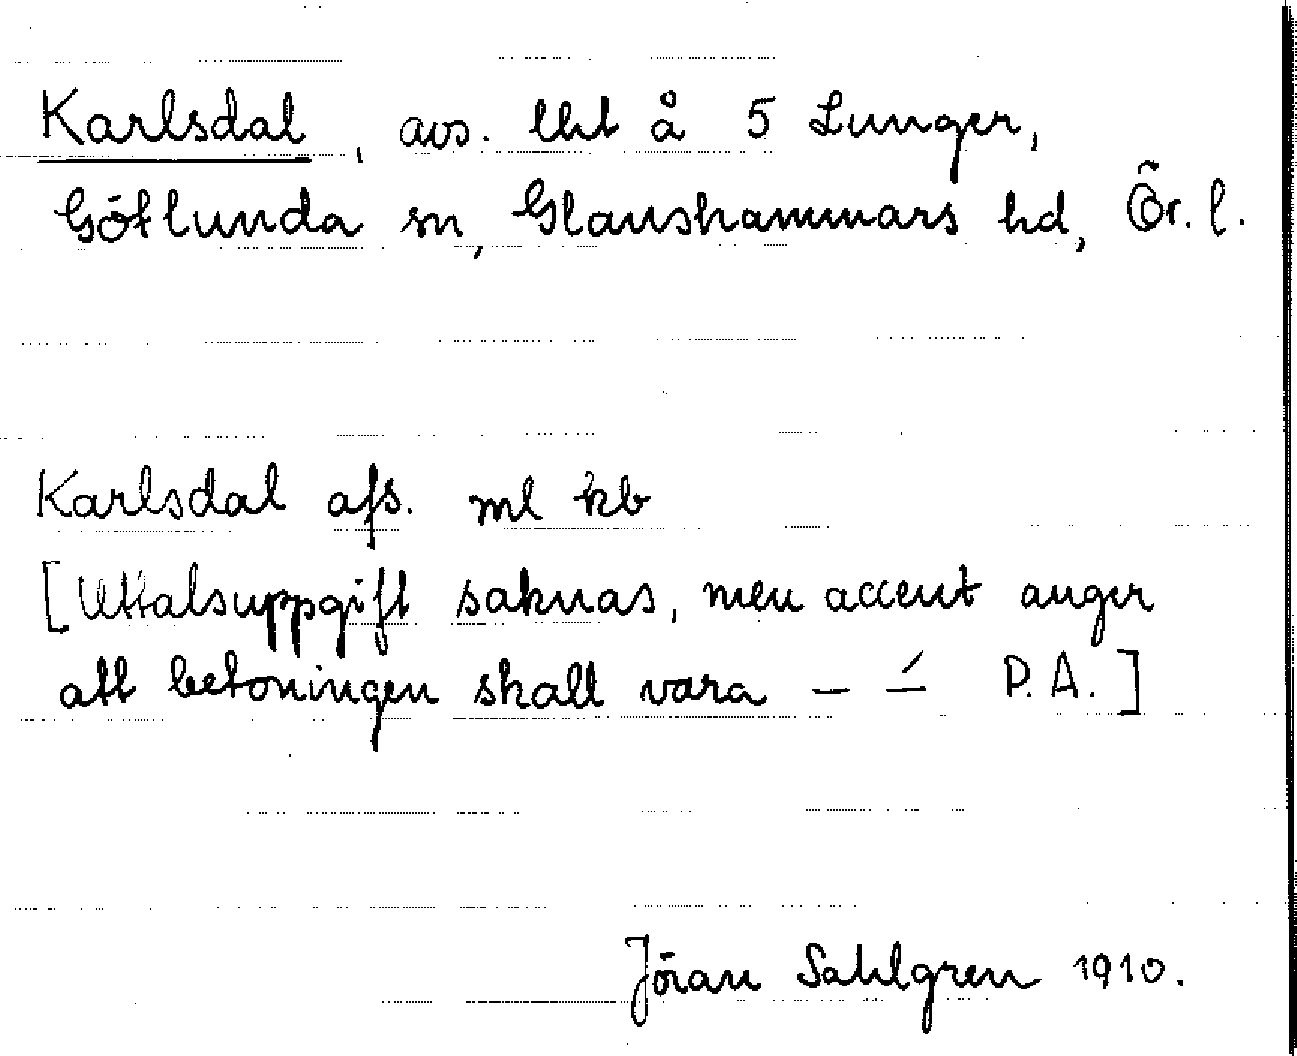 Karlsdal, avs. lht å 5 Lunger,
Götlunda sn, Glanshammars hd, Ör. l.
Karlsdal afs. ml kb
[Uttalsuppgift saknas, men accent anger
att betoningen skall vara – –́ P.A.]
Jöran Sahlgren 1910.